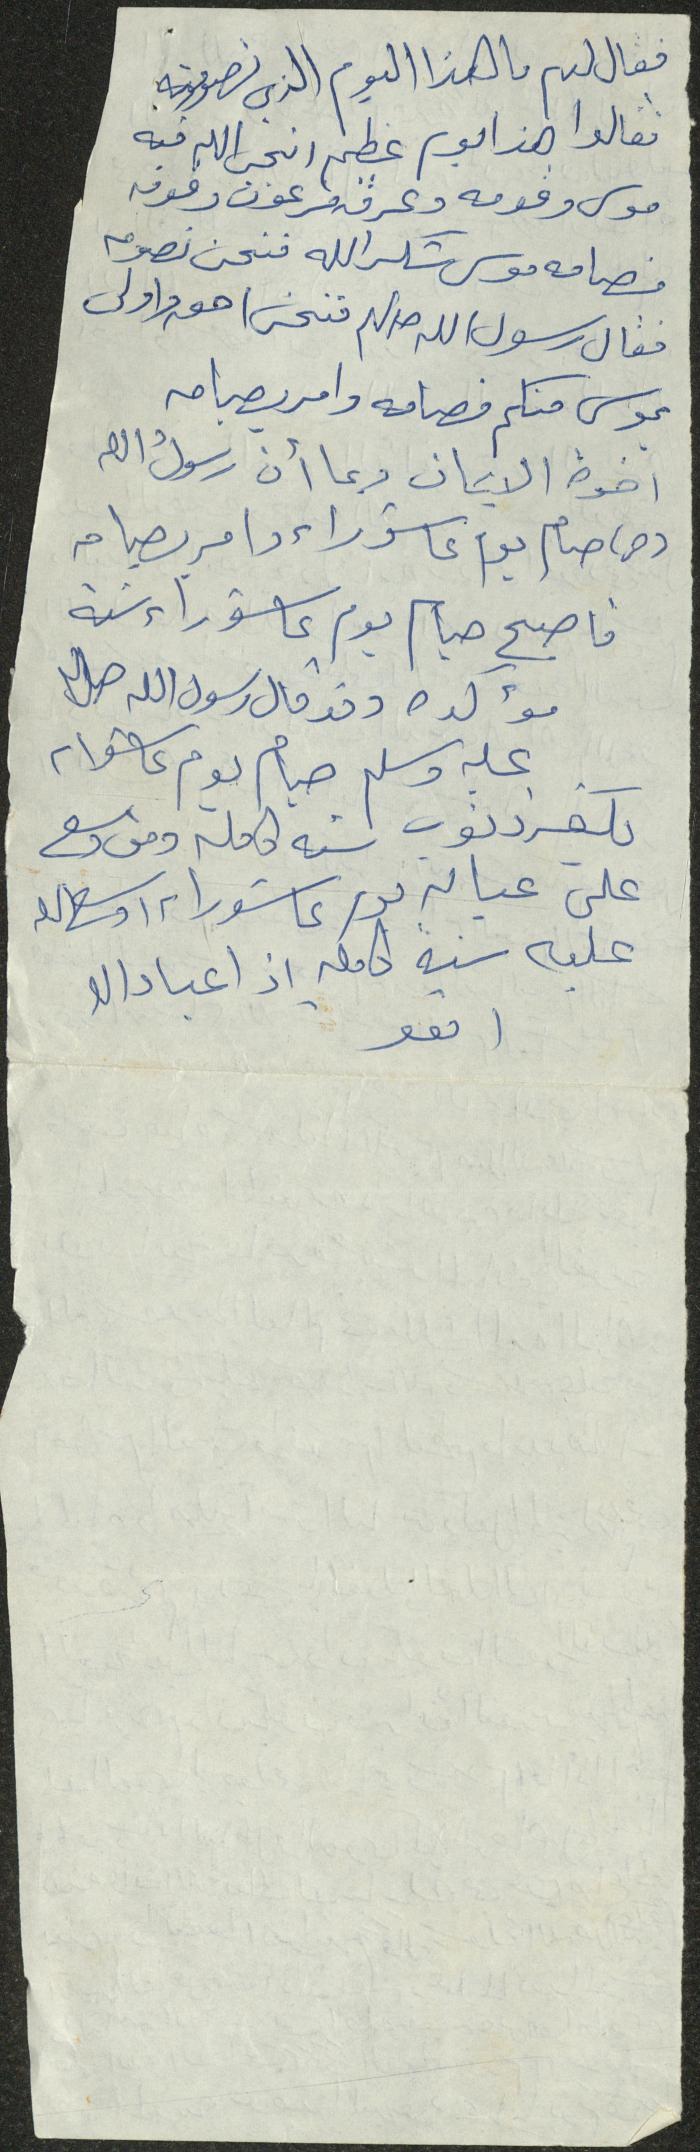 فقال لهم ما هذا اليوم الذي تصومونه
فقالوا هذا يوم عظيم انجى الله فيه
موسى وقومه وغرق فرعون وقومه
فصامه موسى شكرا لله فنحن نصومه
فقال رسول الله صلعم فنحن احق واولى
بموسى منكم فصامه وامر بصيامه
اخوة الايمان وبما أن رسول الله
صام يوم عاشوراء وامر بصيامه
فاصبح صيام يوم عاشوراء سنة
مؤكده وقد قال رسول الله صلى الله
عليه وسلم صيام يوم عاشوراء
يكفر ذنوب سنه كامله ومن وسع
على عياله يوم عاشوراء اوسع الله
عليه سنة كامله اذا عباد الله
اتقو